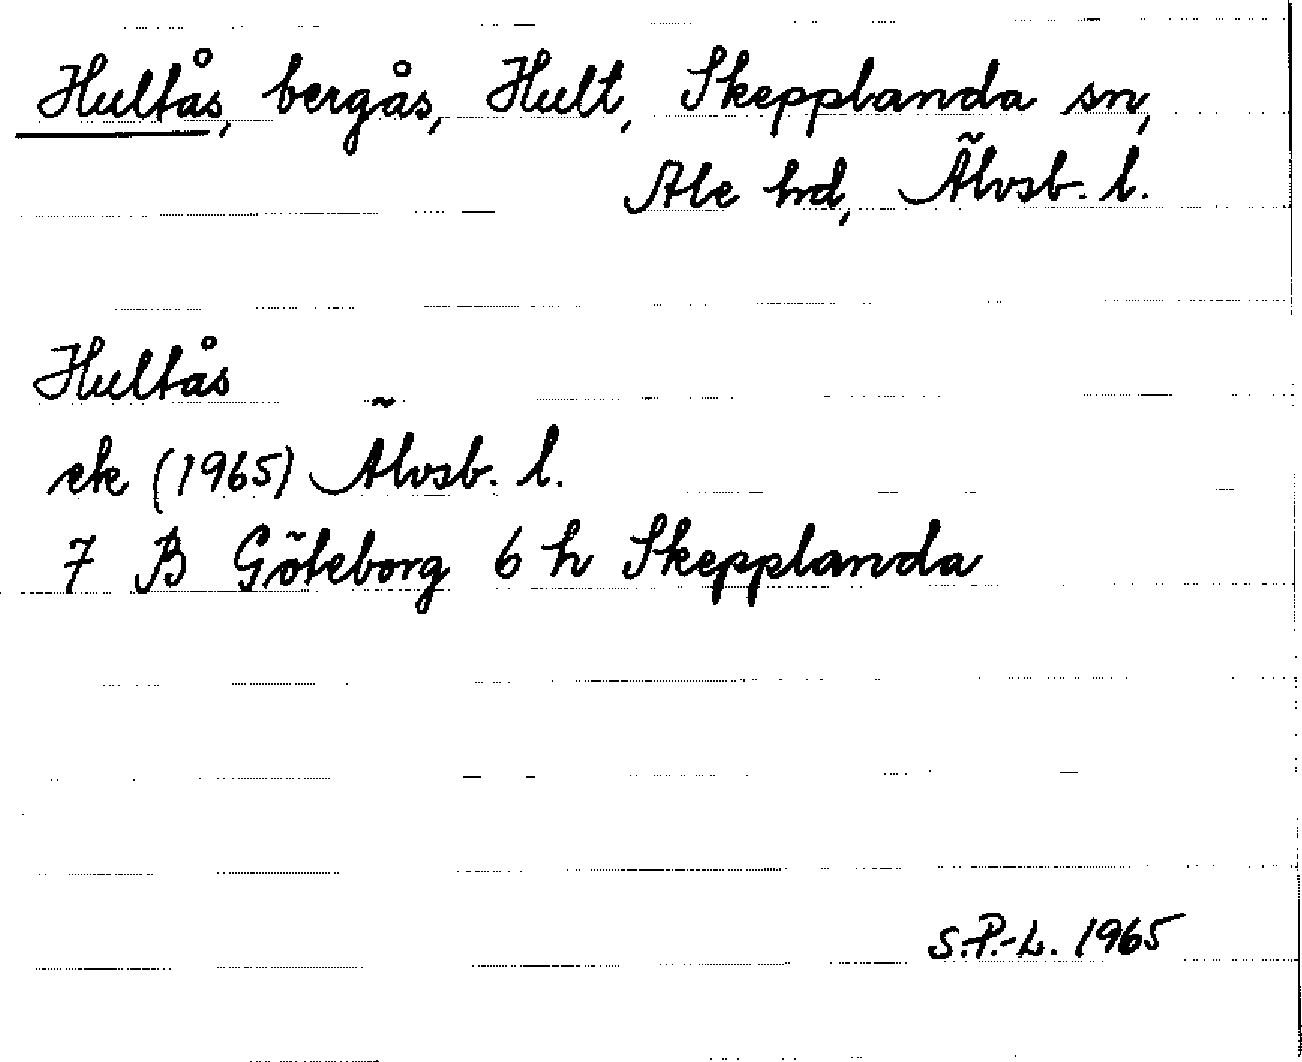 Hultås, bergås, Hult, Skepplanda sn,
Ale hd, Älvsb. l.
Hultås
ek (1965) Älvsb. l.
7 B Göteborg 6 h Skepplanda
S.P.-L. 1965